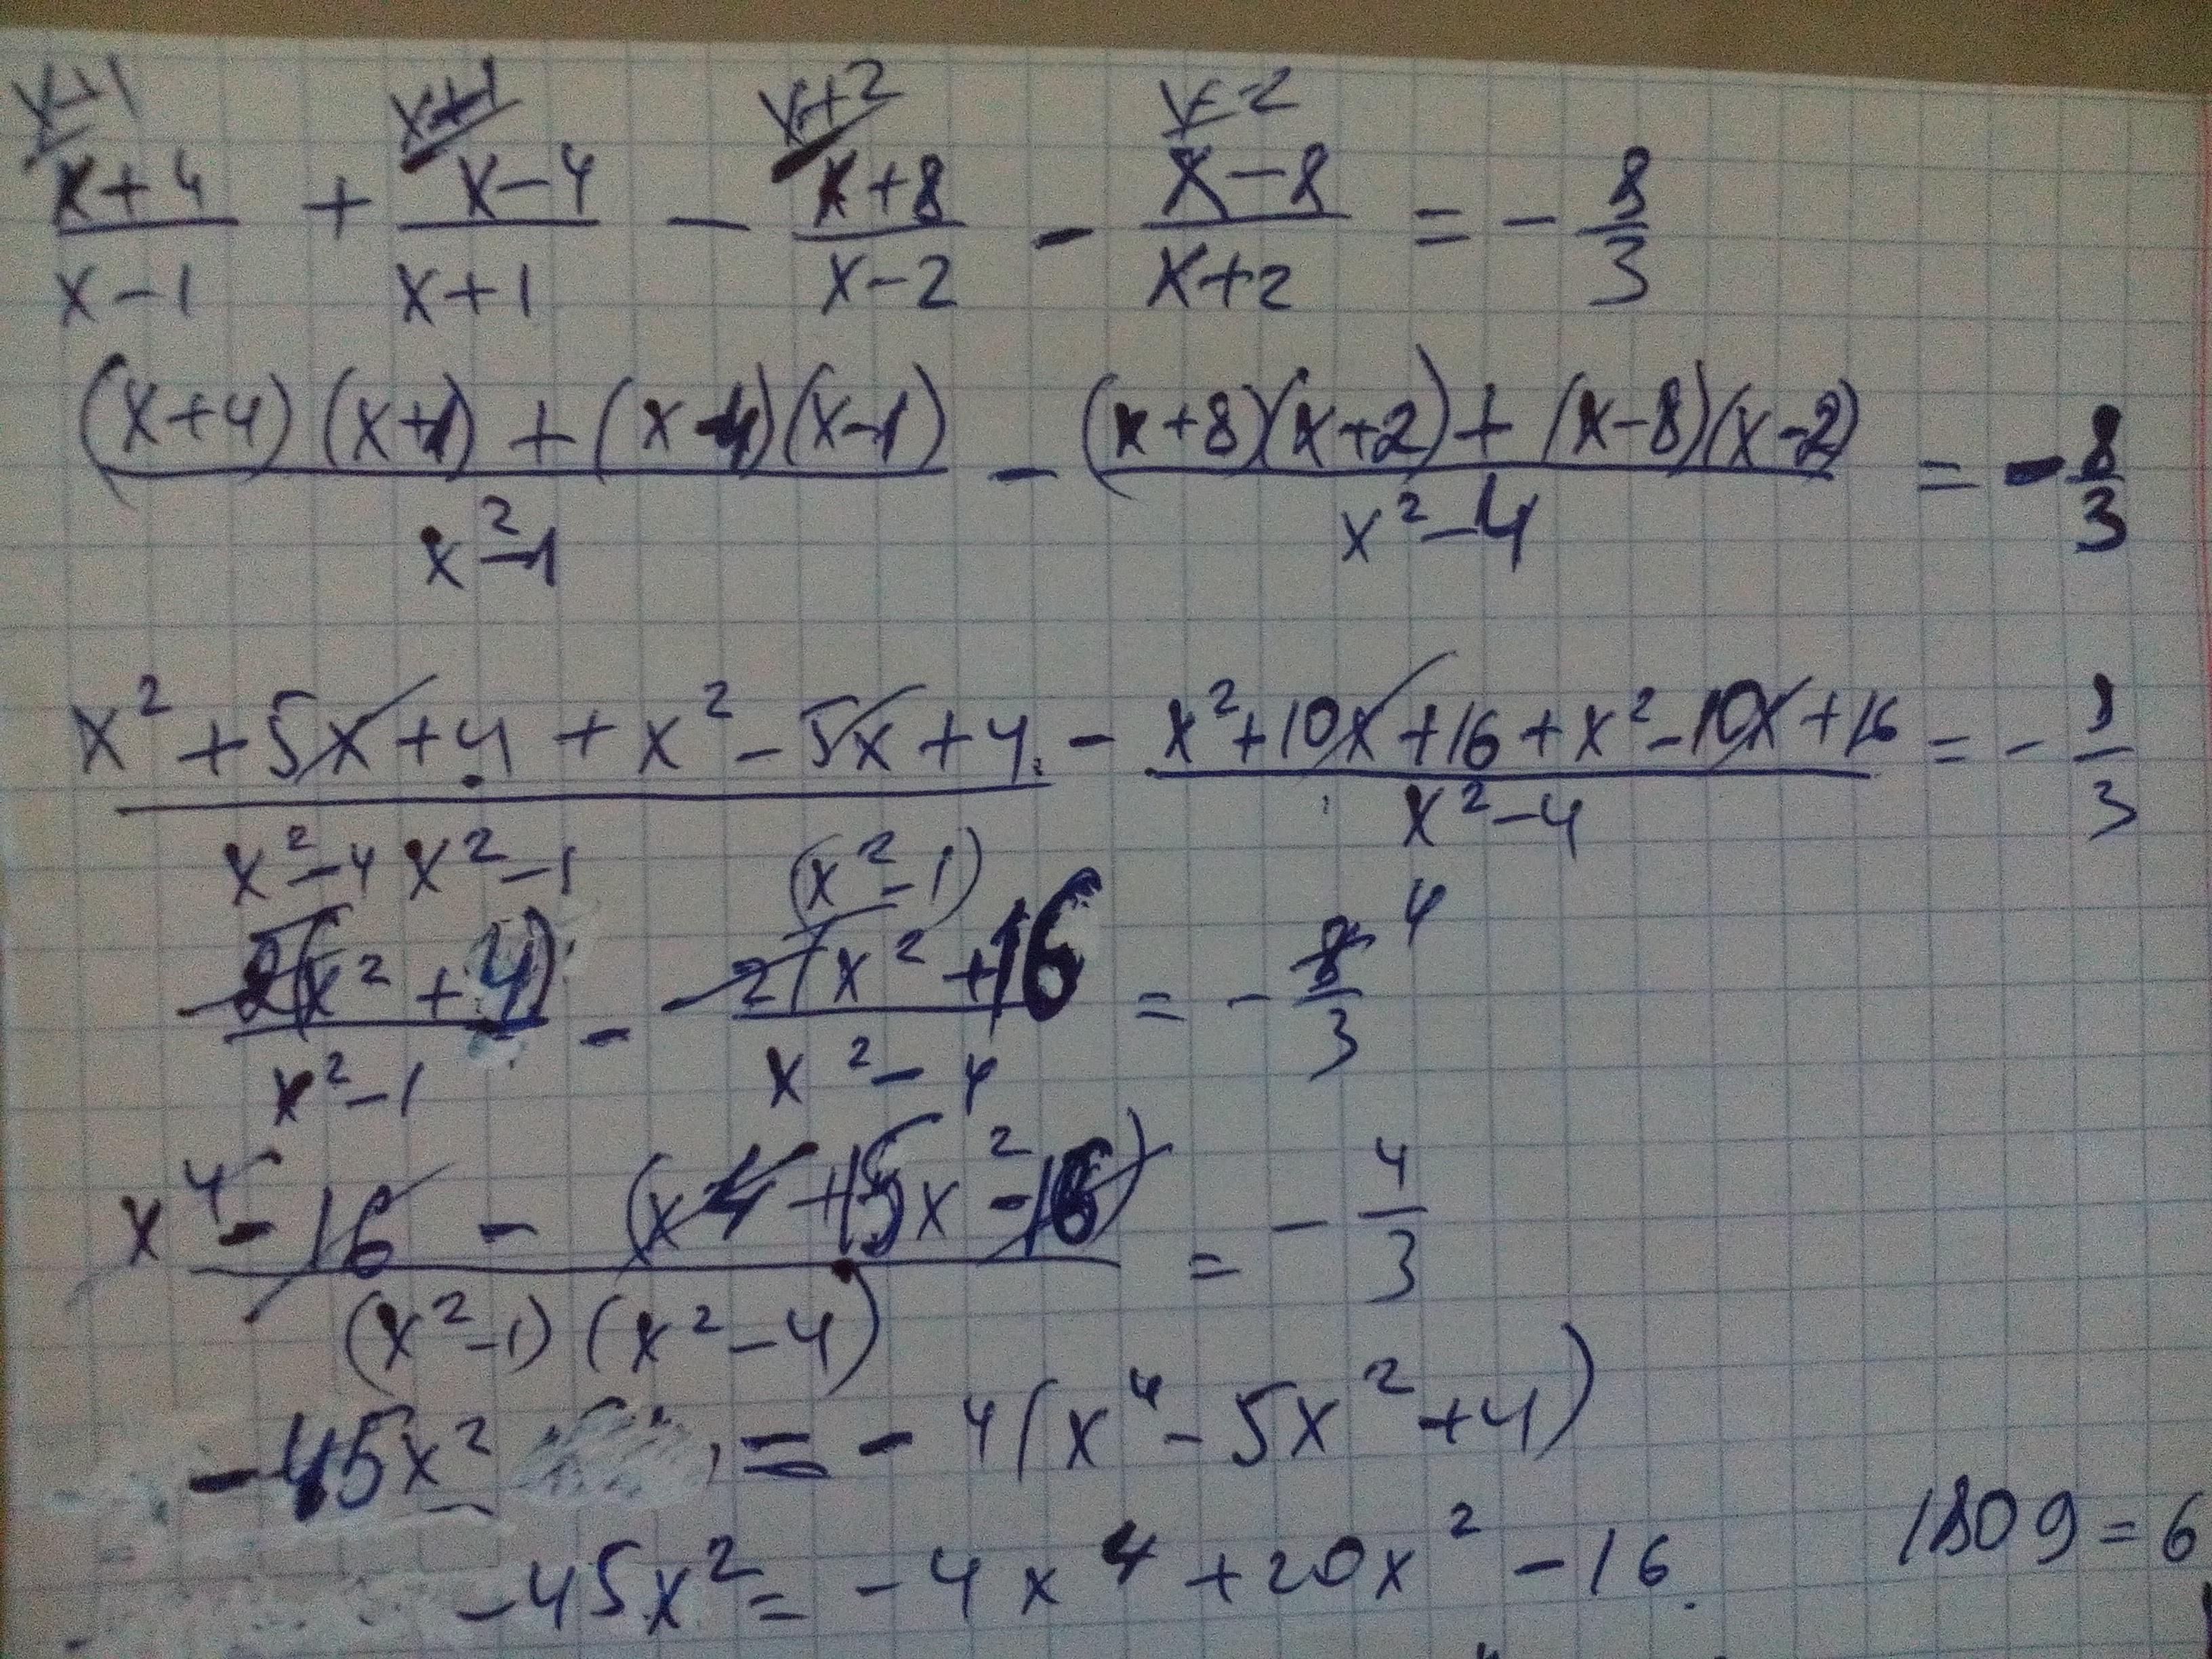 x+1 x+1 x+2 x-2
x+4/x-1 + x-4/x+1 - x+8/x-2 - x-8/x+2 = - 8/3
(x+4)(x+1)+(x-4)(x-1)/x²-1 - (x+8)(x+2)+(x-8)(x-2)/x²-4 = - 8/3
x²+5x+4+x²-5x+4/x²-1 - x²+10x+16+x²-10x+16/x²-4 = - 8/3
x²-4 (x²-1)
2(x²+4)/x²-1 - 2(x²+16/x²-4 = - 8/3 4
x⁴-16-(x⁴+15x²-16)/(x²-1)(x²-4) = - 4/3
-45x² = -4(x⁴-5x²+4)
-45x² = -4x⁴+20x²-16.
1809=6